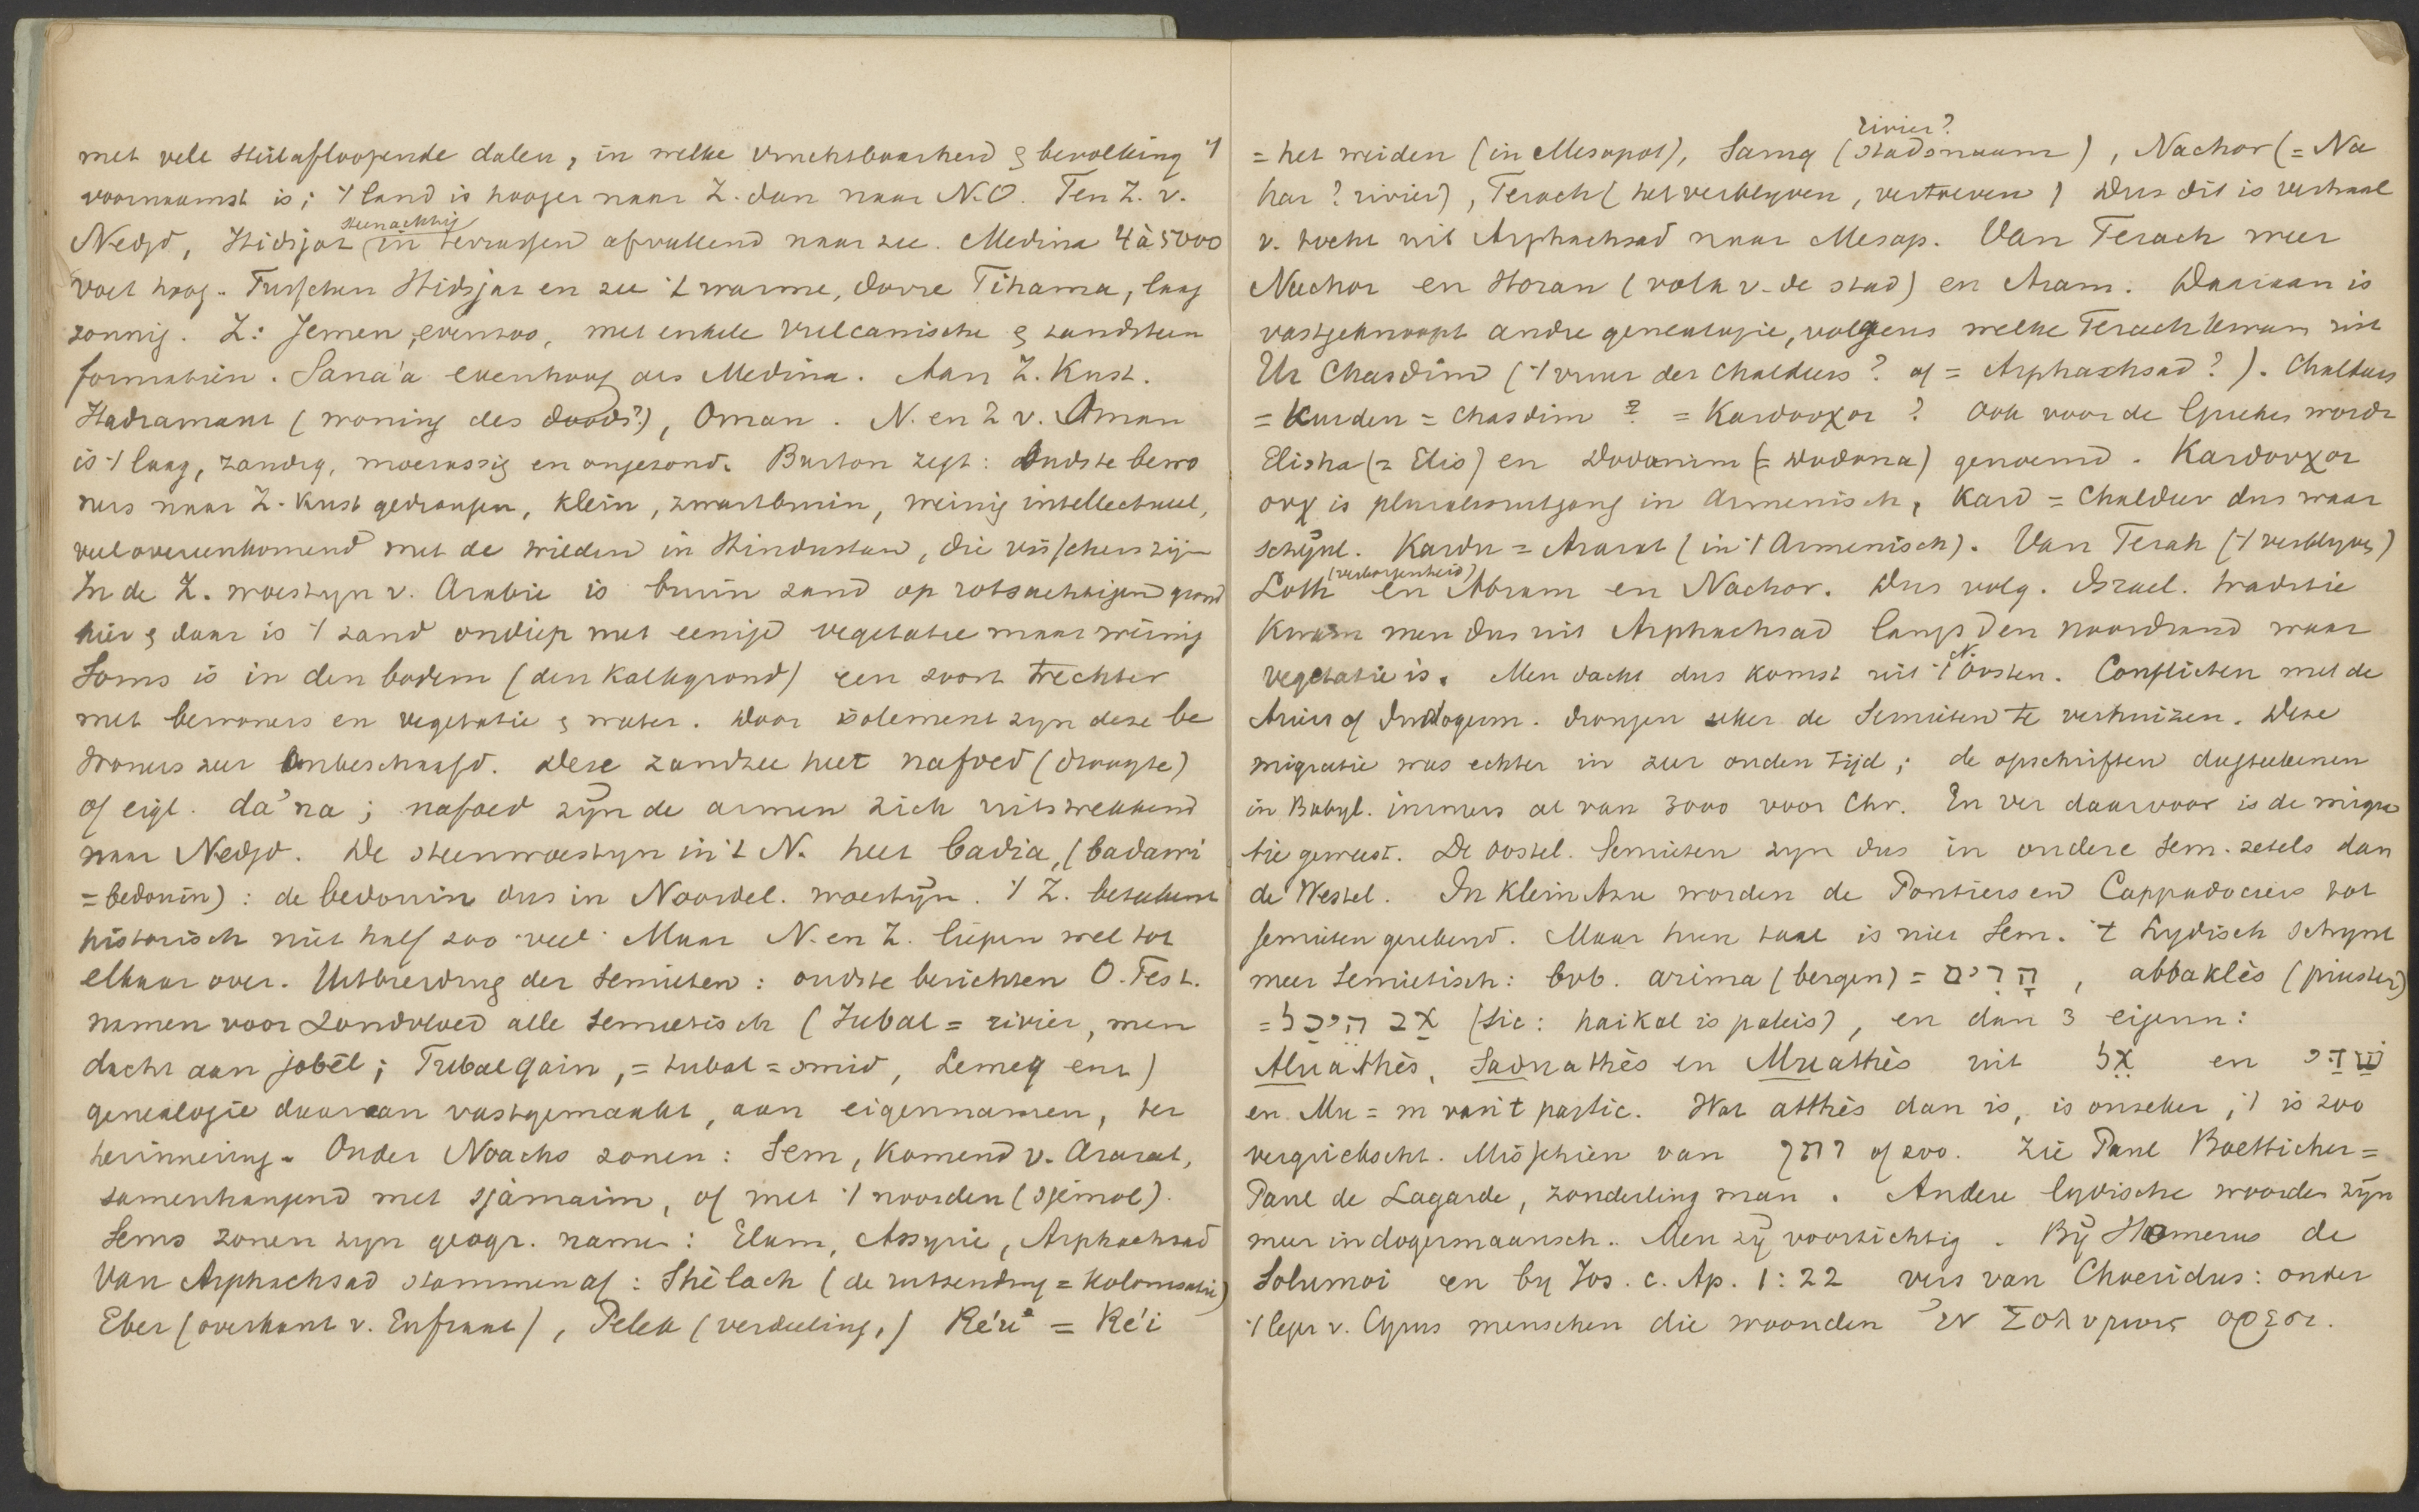 met vele steilafloopende dalen, in welke vruchtbaarheid & bevolking 't
voornaamst is; 't land is hooger naar Z. dan naar N.O. Ten Z. v.
Nedjd, Hidsjaz steenachtig in terrassen afvallend naar zee. Medina 4 à 5000
voet hoog. Tusschen Hidsjaz en zee 't warme, dorre Tihama, laag
zonnig. Z: Jemen, evenzoo, met enkele vulcanische & zandsteen
formatiën. Sana'a evenhoog als Medina. Aan Z. Kust.
Hadramaut (woning des doods?), Oman. N. en Z v. Oman
is 't laag, zandig, moerassig en ongezond. Burton zegt: Oudste bewo
ners naar Z. Kust gedrongen, klein, zwartbruin, weinig intellectueel,
veel overeenkomend met de wilden in Hindustan, die visschers zijn
In de Z. woestyn v. Arabie is bruin zand op rotsachtigen grond
hier & daar is 't zand ondiep met eenige vegetatie maar weinig
Soms is in den bodem (den Kalkgrond) een soort trechter
met bewoners en vegetatie & water. Door isolement zyn deze be
woners zeer onbeschaafd. Deze zandzee heet nafoed (droogte)
of eigl. da'na; nafoed zijn de armen zich uitstrekkend
naar Nedjd. De steenwoestyn in 't N. heet badia, (badawi
= bedouin): de bedouin dus in Noordel. woestijn. 't Z. beteekent
historisch niet half zoo veel. Maar N. en Z. liepen wel tot
elkaar over. Uitbreiding der Semieten: oudste berichten O. Test.
namen voor Zondvloed alle semietisch (Jubal = rivier, men
dacht aan jobēl; Tubalqain, = tubal = smid, Lemeq enz)
genealogie daaraan vastgemaakt, aan eigennamen, ter
herinnering. Onder Noachs zonen: Sem, Komend v. Ararat,
samenhangend met sjàmaim, of met 't noorden (sjémol).
Sems zonen zyn geogr. namen: Elam, Assyrie, Arphachsad
Van Arphachsad stammen af: Shèlach (de uitzending = Kolonisatie)
Eber (overkant v. Eufraat), Peleg (verdeeling,) Re'u = Re'i
= het weiden (in Mesopot), Sarug (stadsnaam rivier?), Nachor (= Na
har? rivier), Terach (het verblyven, vertoeven) Dus dit is verhaal
v. tocht uit Arphachsad naar Mesop. Van Terach weer
Nachor en Horan (volk v. de stad) en Aram. Daaraan is
vastgeknoopt andre genealogie, volgens welke Terach kwam uit
Ur Chasdim ('t vuur der Chaldeers? of = Arphachsad?). Chaldeers
= Kurden = Chasdim ? = Καρδουχοι ? Ook voor de Grieken wordt
Elisha (= Elis) en Dodanim (= Dodona) genoemd. Καρδουχοι
ουχ is pluralisuitgang in Armenisch, Kard = Chaldeer dus waar
schijnl. Kardu = Ararat (in 't Armenisch). Van Terah ('t verblyven)
Loth (verborgenheid) en Abram en Nachor. Dus volg. Israel. traditie
Kwam men dus uit Arphachsad langs den noordrand waar
vegetatie is. Men dacht dus komst uit 't N. Oosten. Conflicten met de
Ariers of Indogerm. drongen zeker de Semieten te verhuizen. Deze
migratie was echter in zeer ouden tijd; de opschriften dagteekenen
in Babyl. immers al van 3000 voor Chr. En ver daarvoor is de migra
tie geweest. De oostel. Semieten zyn dus in oudere Sem. zetels dan
de Westel. In Klein Azie worden de Pontiers en Cappadociers tot
semieten gerekend. Maar hun taal is niet Sem. 't Lydisch schynt
meer Semietisch: bvb. arima (bergen) = הָרִים, abbaklès (priester)
= אב היכל (sic: haikal is paleis), en dan 3 eigenn:
Aluathès, Saduathès en Muathès uit אל en שדי
en Mu = m van 't partic. Wat atthès dan is, is onzeker, 't is zoo
vergriekscht. Misschien van of zoo. Zie Paul Boetticher =
Paul de Lagarde, zonderling man. Andere lydische woorden zijn
meer indogermaansch. Men zij voorzichtig. Bij Homerus de
Solumoi en by Jos. c. Ap. 1:22 vers van Choeridus: onder
't leger v. Cyrus menschen die woonden ἐν Σολυμοις ορεσι.